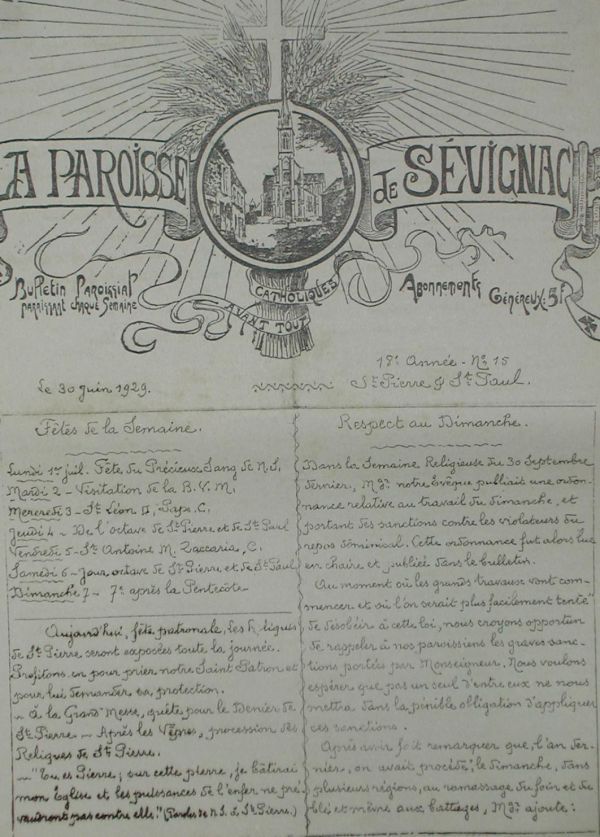 LA PAROISSE de SÉVIGNAC
Bulletin Paroissial
paraissant chaque Semaine
CATHOLIQUES
AVANT TOUT
Abonnements
Généreux: 5f
18e Année - No 15
Le 30 Juin 1929.
St Pierre & St Paul.
Fêtes de la Semaine.
Lundi 1er juil. Fête du Précieux Sang de N.S.
Mardi 2 - Visitation de la B.V.M.
Mercredi 3 - St Léon II, Pape. C.
Jeudi 4 - De l'octave de St Pierre et de St Paul
Vendredi 5 - St Antoine M. Zaccaria, C.
Samedi 6 - Jour octave de St Pierre et de St Paul
Dimanche 7 - 7e après la Pentecôte -
Aujourd'hui, fête patronale, les Reliques
de St Pierre seront exposées toute la journée.
Profitons-en pour prier notre Saint Patron et
pour lui demander sa protection.
- À la Grand'Messe, quête pour le Denier de
St Pierre. - Après les Vêpres, procession des
Reliques de St Pierre.
- "Tu es Pierre; sur cette pierre, je bâtirai
mon Église et les puissances de l'enfer ne pré-
vaudront pas contre elle." (Paroles de N.S. à St Pierre.)
Respect au Dimanche.
Dans la Semaine Religieuse du 30 Septembre
dernier, Mgr notre Évêque publiait une ordon-
nance relative au travail du dimanche, et
portant des sanctions contre les violateurs du
repos dominical. Cette ordonnance fut alors lue
en chaire et publiée dans le bulletin.
Au moment où les grands travaux vont com-
mencer et où l'on serait plus facilement tenté
de désobéir à cette loi, nous croyons opportun
de rappeler à nos paroissiens les graves sanc-
tions portées par Monseigneur. Nous voulons
espérer que pas un seul d'entre eux ne nous
mettra dans la pénible obligation d'appliquer
ces sanctions.
Après avoir fait remarquer que, l'an der-
nier, on avait procédé, le dimanche, dans
plusieurs régions, au ramassage du foin et du
blé et même aux battages, Mgr ajoute: